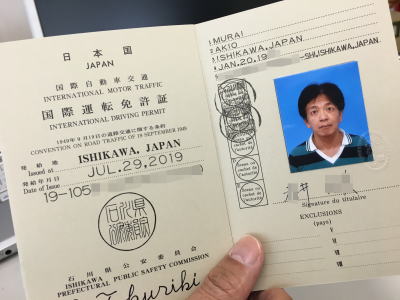 日本国
JAPAN
国際自動車交通
INTERNATIONAL MOTOR TRAFFIC
国際運転免許証
INTERNATIONAL DRIVING PERMIT
1949年9月19日の道路交通に関する条約
CONVENTION ON ROAD TRAFFIC OF 19 SEPTEMBER 1949
発給地
Issued at
ISHIKAWA, JAPAN
発給年月日
Date of Issue
JUL.29,2019
19-105
石川県公安委員会
ISHIKAWA
PREFECTURAL PUBLIC SAFETY COMMISSION
1 MURAI
2 AKIO
3 ISHIKAWA,JAPAN
4 JAN.20.19
5 SHI,ISHIKAWA,JAPAN
Sceau ou
cachet de
l'autorité
Sceau ou
cachet de
l'autorité
Signature du titulaire
EXCLUSIONS
(pays)